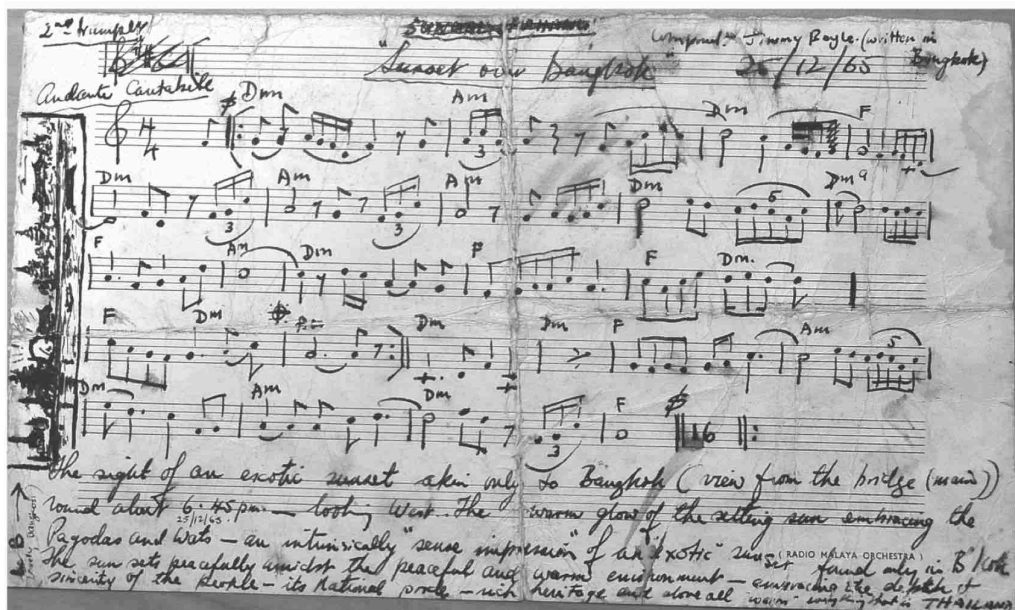 2nd trumpet
"Sunset over Bangkok"
Composed: Jimmy Boyle. (written in Bangkok)
25/12/65
Andante Cantabile
Dm Am Dm F
4/4
3
Dm Am Am Dm Dm9
3 3 6
F Am Dm F F Dm.
F Dm Dm Dm F Am
5
Dm Am Dm F
3 16
The sight of an exotic sunset akin only to Bangkok (view from the bridge (main))
round about 6.45 pm. — looking West. The warm glow of the setting sun embracing the
25/12/65.
Pagodas and Wats — an intrinsically "sense impression" of an "exotic" sunset found only in B'Kok
(RADIO MALAYA ORCHESTRA)
The sun sets peacefully amidst the peaceful and warm environment — embracing the depth of
sincerity of the people — its national pride — rich heritage and above all "warm" everything that is THAILAND